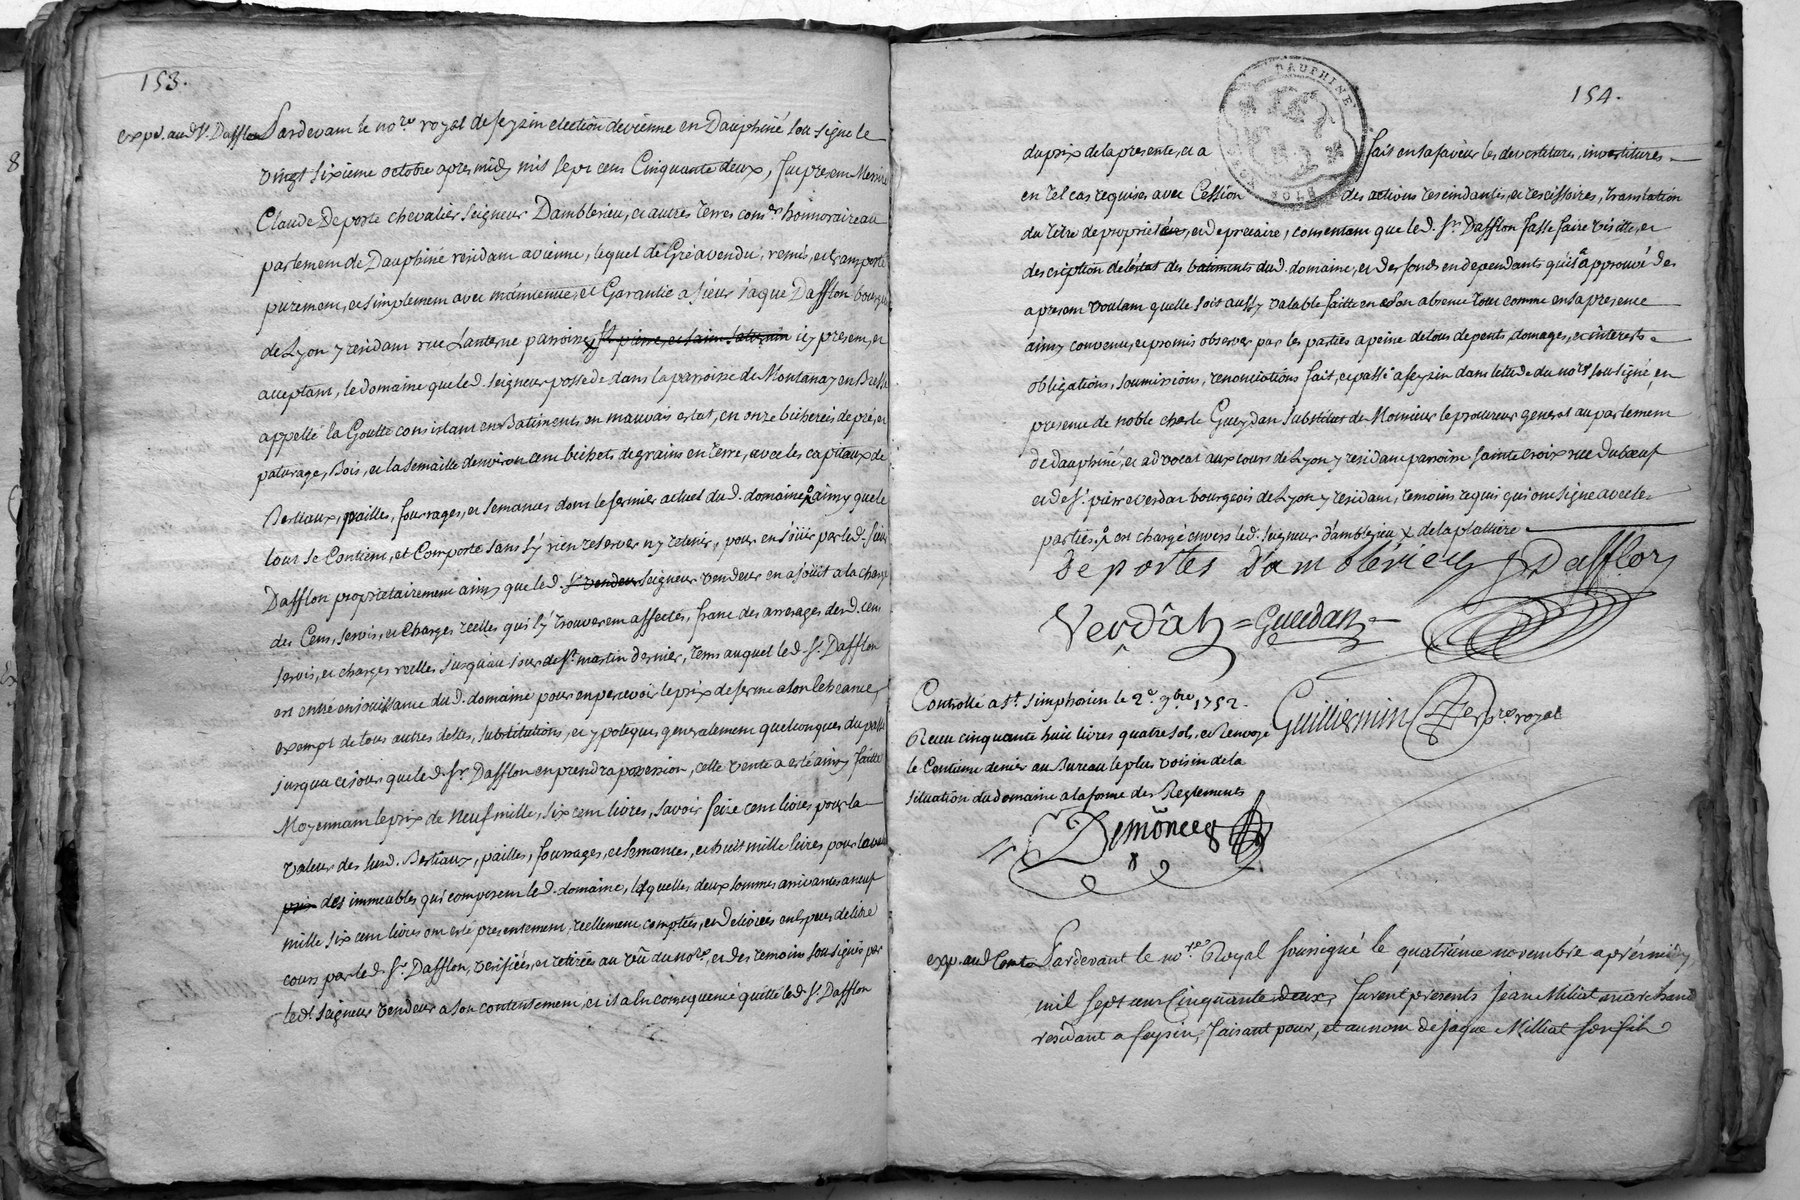 153.
exped. aud. Sr. Dafflon Pardevant le nore. royal de feyzin election de vienne en Dauphiné sousigne le
vingt sixieme octobre apres midy mil sept cens Cinquante deux, fut present Messire
Claude Deporte chevalier seigneur Damblerieu, et autres terres coner. honnoraire au
parlement de Dauphiné residant a vienne, lequel de Gré a vendu, remis, et transporté
purement, et simplement avec maintenue, et Garantie a sieur Jaque Dafflon bourgeois
de Lyon y residant rue Lanterne parroisse St. pierre, et saint saturnin icy present, et
acceptant, le domaine que led. seigneur possede dans la parroisse de Montanay en Bresse
appellé la Goutte consistant en Batiments en mauvais estat, en onze bicherées de pré, et
paturage, Bois, et la semaille d'environ cent bichets de grains en terre, avec les capitaux de
Bestiaux, pailles, fourrages, et semances dont le fermier actuel dud. domaine ainsy que le
tout se Contient, et Comporte sans s'y rien reserver n'y retenir, pour en joüir par led. sieur
Dafflon proprietairement ainsy que led. Sr vendeur seigneur vendeur en a joüit a la charge
des Cens, servis, et charges réelles qui s'y trouveront affectés, franc des arrerages desd. cens
servis, et charges reelles jusqu'au jour de St. martin dernier, tems auquel led. Sr. Dafflon
est entré en joüissance dud. domaine pour en percevoir le prix de ferme a son Echeance,
exempt de tous autres dettes, substitutions, et ypoteques generalement quelconques du passé
jusqua ce jour que led. Sr. Dafflon en prendra possession, cette vente a esté ainsy faitte
Moyennant le prix de Neuf mille, six cent livres, savoir seize cent livres pour la
valeur des susd. Bestiaux, pailles, fourrages, et semances, et huit mille livres pour la valeur
prix des immeubles qui composent led. domaine, lesquelles deux sommes arrivantes a neuf
mille six cent livres ont esté presentement, reellement comptées, et delivrées en Especes de libre
cours par led. Sr. Dafflon, verifiées, et retirées au vû du nore., et des temoins sousignés par
led. seigneur vendeur a son contentement, et il a En consequence quitté led. Sr. Dafflon
154.
DAUPHINE
du prix de la presente, et a fait en sa faveur les devestitures, investitures
en tel cas requises avec Cession des actions rescindantes, et rescissoires, translation
du titre de proprieté, et de precaire, consentant que led. Sr. Dafflon fasse faire visitte, et
description de l'estat des batiments dud. domaine, et des fonds en dependants qu'il a approuvé des
apresent voulant quelle soit aussy valable faitte en son absence tout comme en sa presence
ainsy convenu, et promis observer par les parties a peine de tous depents, domages, et interests
obligations, soumissions, renonciations fait, et passé a feyzin dans letude du nore. sousigné, en
presence de noble charle Gueydan substitut de Monsieur le procureur general au parlement
de dauphiné, et advocat aux cours de Lyon y residant parroisse sainte croix rue du bœuf
et de Sr. pierre verdat bourgeois de Lyon y residant, temoins requis qui ont signé avec les
parties, est chargé envers led. seigneur d'amblerieu X de la plattiere
Deportes D'amblérieu J Dafflon
Verdat = Gueidan
Controllé a St. simphorien le 2e. 9bre 1752.
Receu cinquante huit livres quatre sols, et Renvoyé
le Centieme denier au Bureau le plus voisin de la
situation du domaine a la forme des Reglements
Guilliermin nore royal
Demoncees
exp. aud. Pardevant le nore. Royal soussigné le quatriéme novembre aprés midy
mil sept cens Cinquante deux, furent presents Jean Milliat marchand
residant a feyzin, faisant pour, et au nom de Jaque Milliat son fils